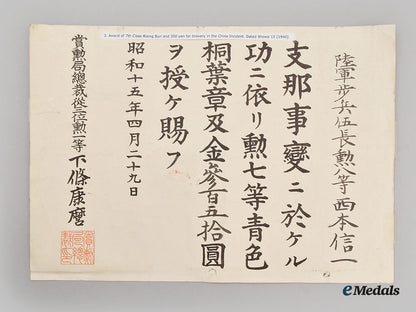 3. Award of 7th Class Rising Sun and 350 yen for bravery in the China Incident. Dated Showa 15 (1940)
陸軍歩兵伍長勲八等西本信一
支那事變ニ於ケル
功ニ依リ勲七等青色
桐葉章及金參百五拾圓
ヲ授ケ賜フ
昭和十五年四月二十九日
賞勲局總裁從三位勲一等下條康麿
eMedals